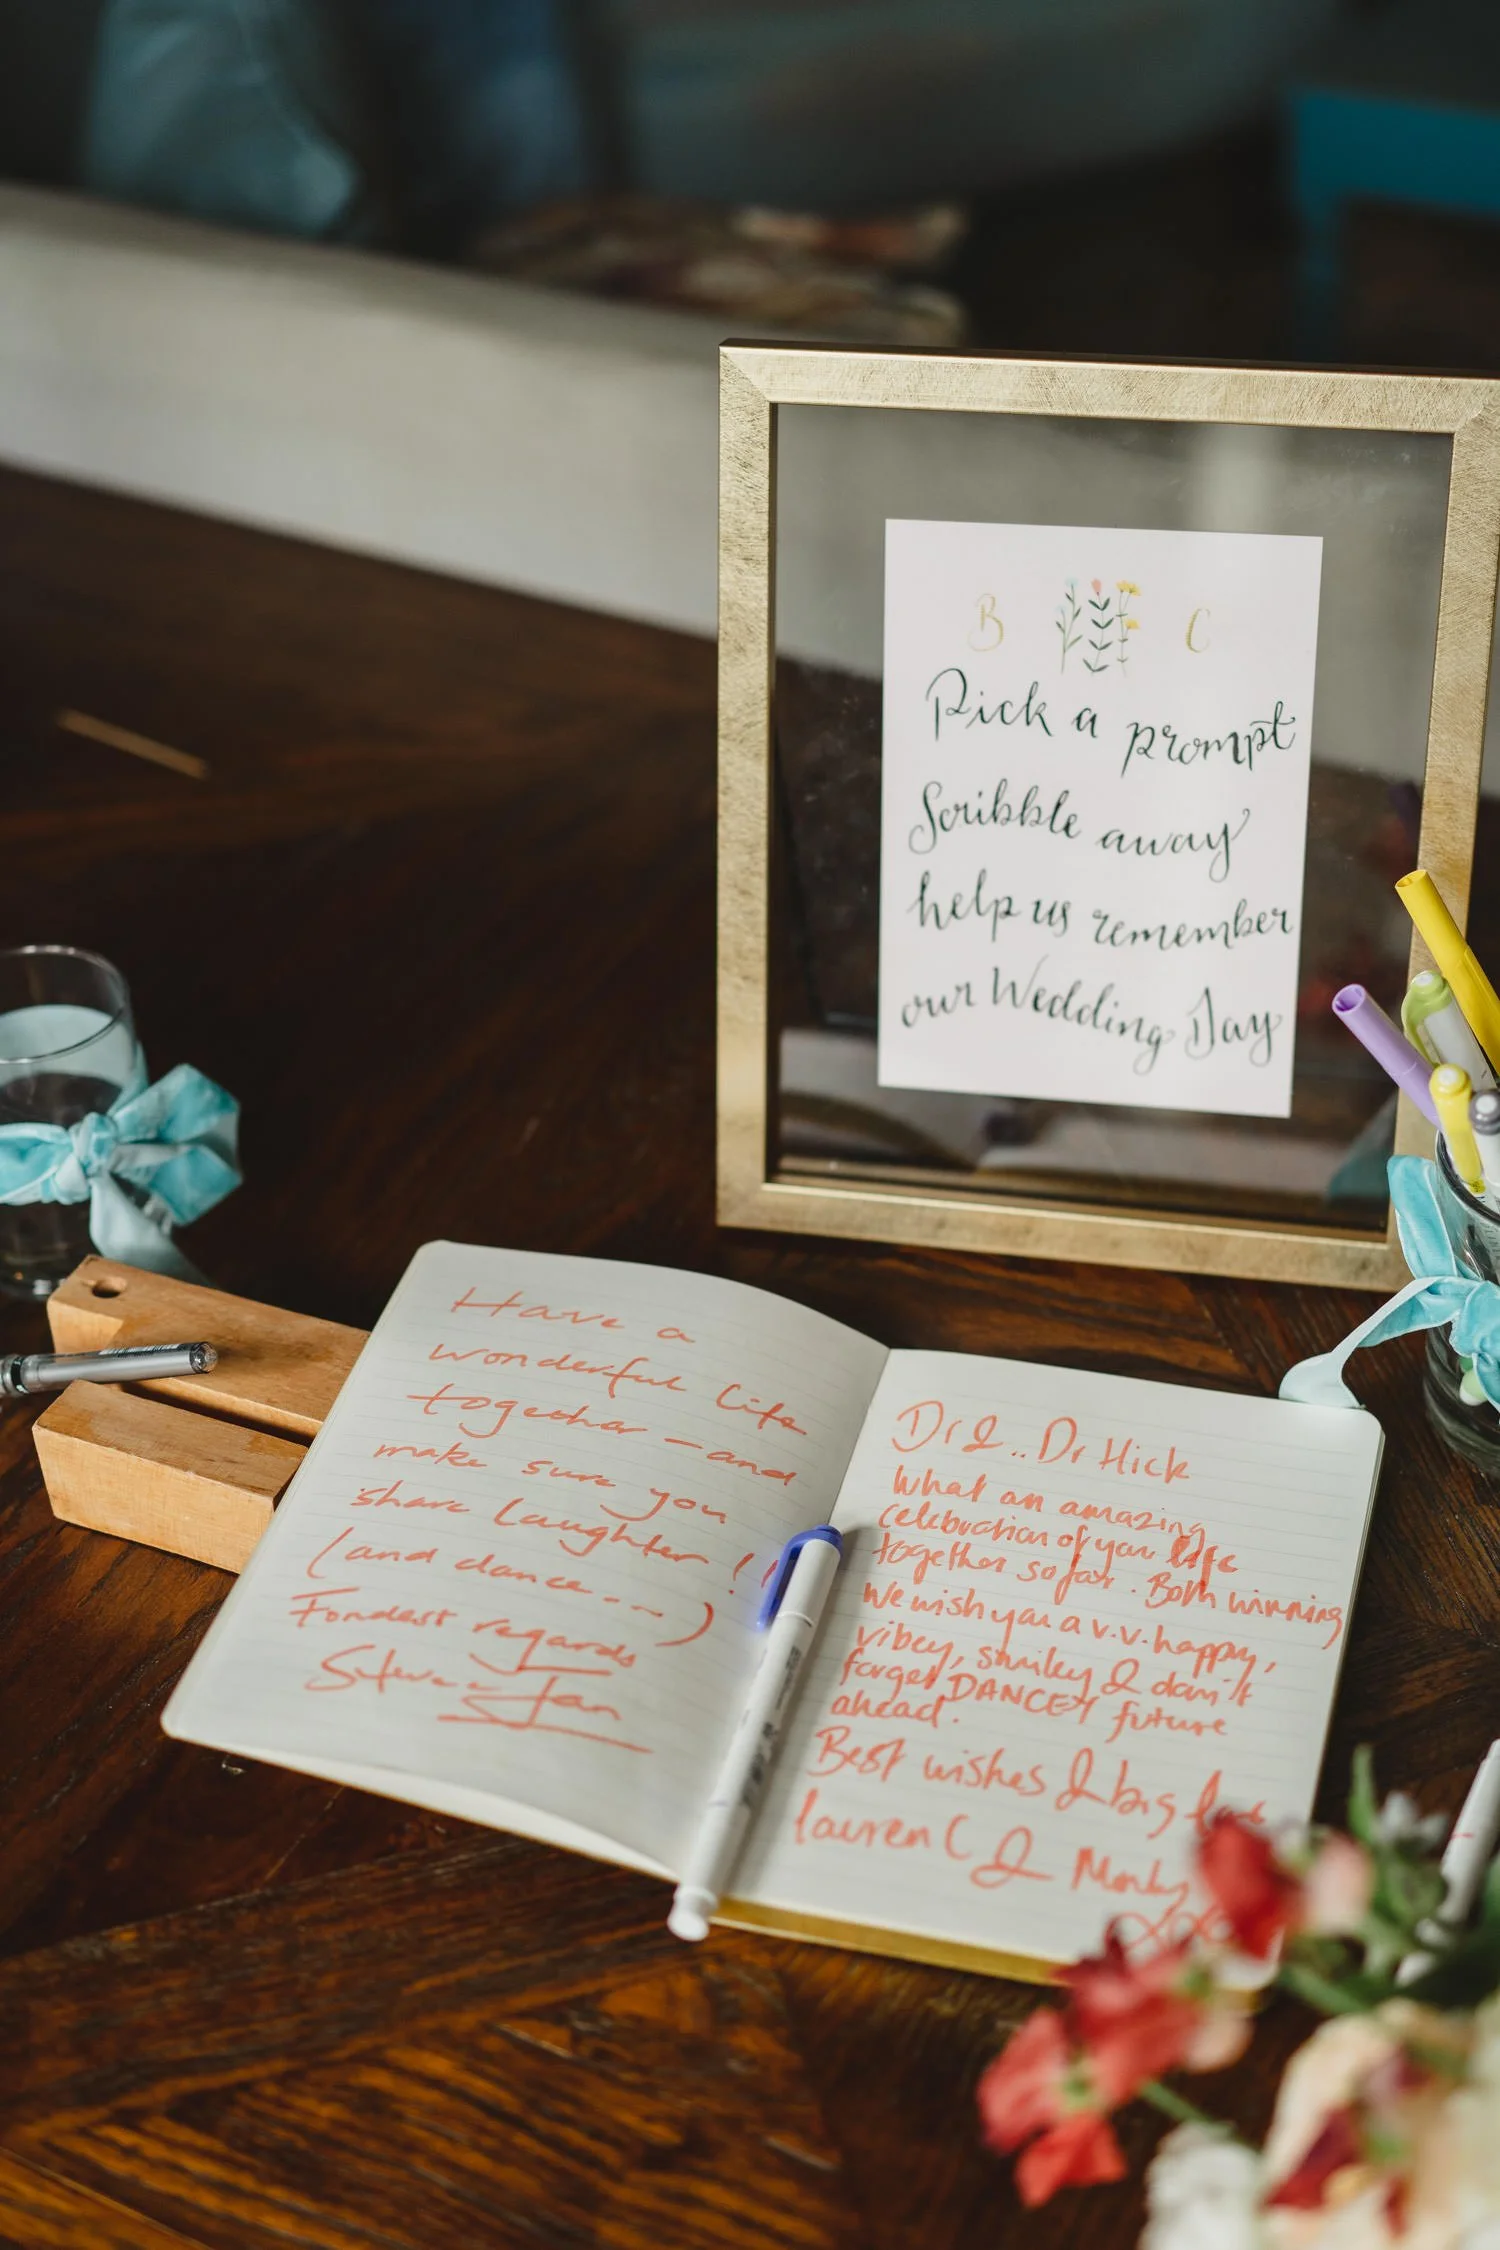 B C
Pick a prompt
Scribble away
help us remember
our Wedding Day
Have a
wonderful life
together - and
make sure you
share laughter !!
(and dance ---)
Fondest regards
Jan
Dr & .. Dr Hick
What an amazing
celebration of your life
together so far. Both winning
We wish you a v.v. happy,
vibey, smiley & don't
forget DANCEY future
ahead.
Best wishes & big
Lauren C &